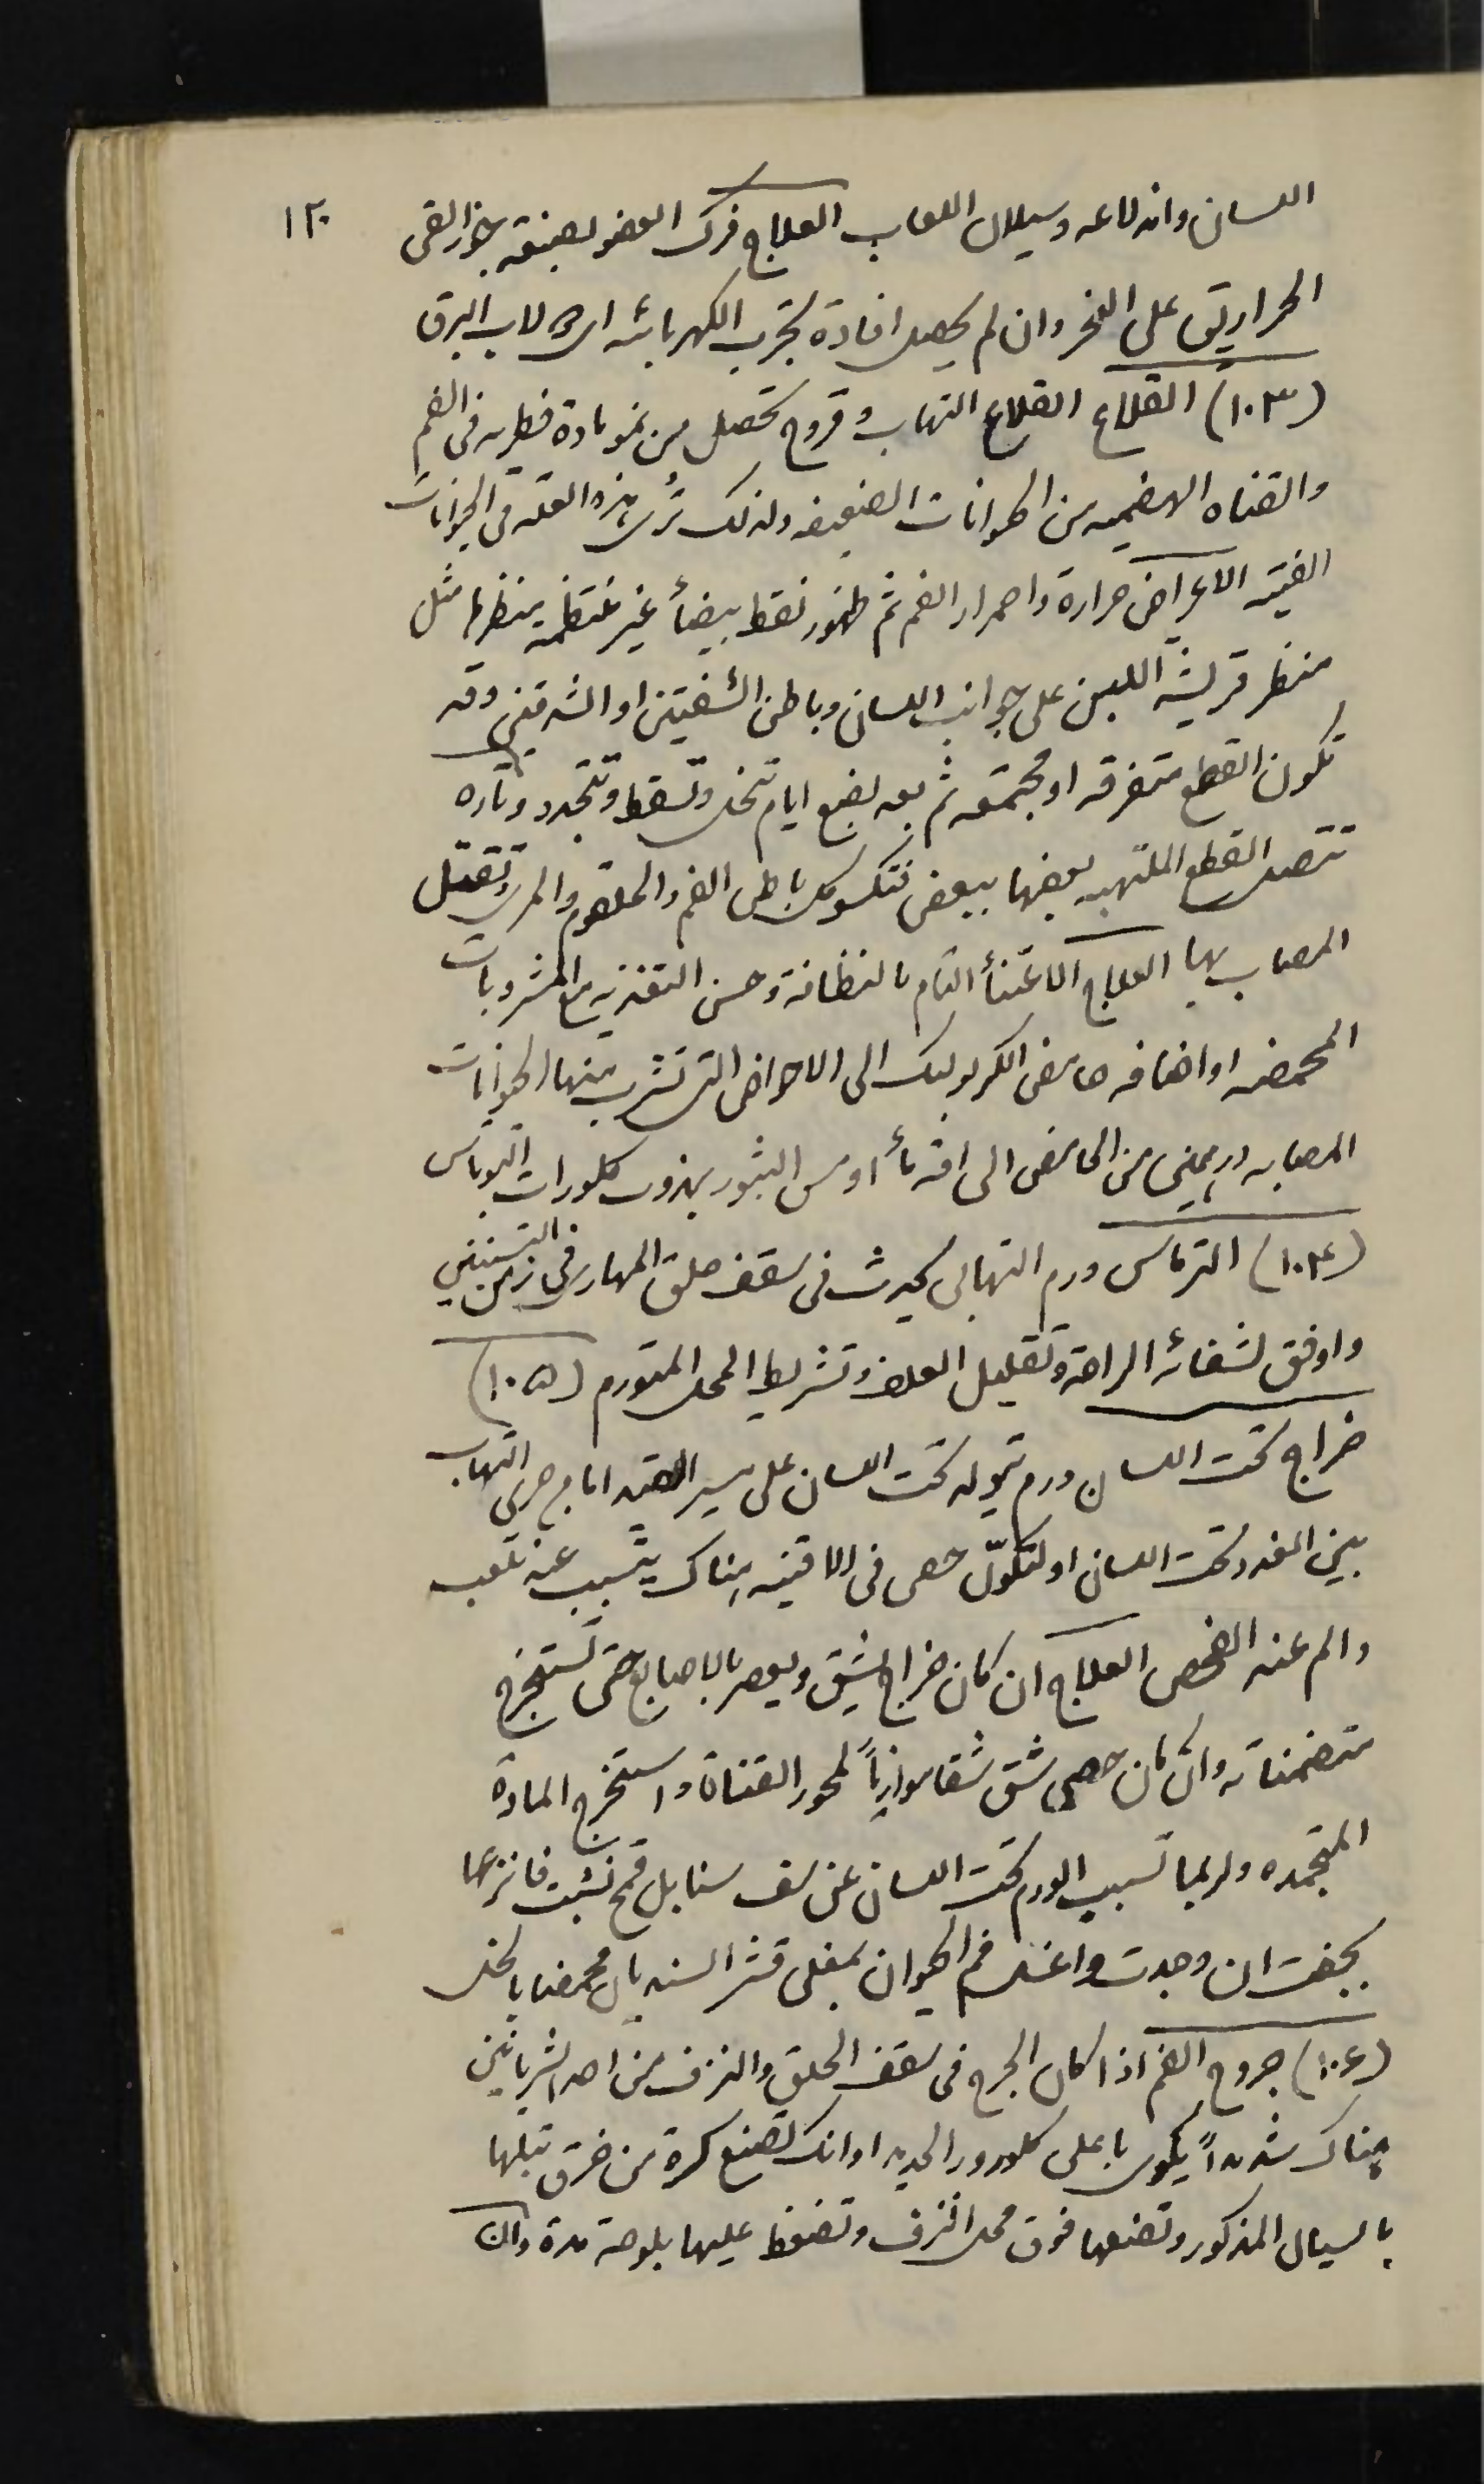 ١٢٠
اللسان واندلاعه وسيلان اللعاب العلاج فرك العضو بصبغة جوز القى
الحراريق على النحر وان لم يحصل افادة تجرب الكهربائيه اى دولاب البرق
(١٠٣) القلاع القلاع التهاب وقروح تحصل من نمو مادة فطريه فى الفم
والقناه الهضميه من الحيوانات الضعيفه ولذلك ترى هذه العله فى الحيوانات
الفتيه الاعراض حرارة واحمرار الفم ثم ظهور نقط بيضأ غير منتظمه منظرها مثل
منظر قريشة اللبن على جوانب اللسان وباطن الشفتين او الشدقين وقد
تكون القطع متفرقه او مجتمعه ثم بعد بضع ايام تنحل وتسقط وتتجدد وتاره
تتصل القطع الملتهبه بعضها ببعض فتكسو كل باطن الفم والحلقوم والمرى وتقتل
المصاب بها العلاج الاعتنأ التام بالنظافة وحسن التغذيه مع المشروبات
المحمضه او اضافه حامض الكربوليك الى الاحواض التى تشرب منها الحيوانات
المصابه درهمين من الحامض الى اقة مأ او مس البثور بمذوب كلورات البوتاس
(١٠٤) الترماس ورم التهابى يحدث فى سقف حلق المهارى فى زمن التسنين
واوفق لشفائه الراحة وتقليل العلف وتشريط المحل المتورم (١٠٥)
خراج تحت اللسان ورم يتولد تحت اللسان على مسير الاقنيه اما من جرى التهاب
بين الغدد تحت اللسان او لتكوّن حصى فى الاقنيه هناك يتسبب عنه تلعب
والم عند الفحص العلاج ان كان خراج يشق ويعصر بالاصابع حتى تستخرج
متضمناته وان كان حصى شق شقا موازياً لمحور القناة واستخرج المادة
المتجمده ولربما تسبب الورم تحت اللسان عن سف سنابل قمح نشبت فانزعها
بجفت ان وجدت واغسل فم الحيوان بمغلى قشر السنديان محمضا بالخل
(١٠٦) جروح الفم اذا كان الجرح فى سقف الحلق والنزف من احد الشريانين
هناك شديداً يكوى باعلى كلورور الحديد او انك تصنع كرة من خرق تبلها
بالسيال المذكور وتضعها فوق محل النزف وتضغط عليها بلوحة مدة والا